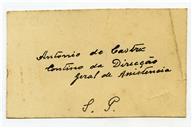 Antonio de Castro
Contino da Direcção
Geral de Assistencia
S. P.